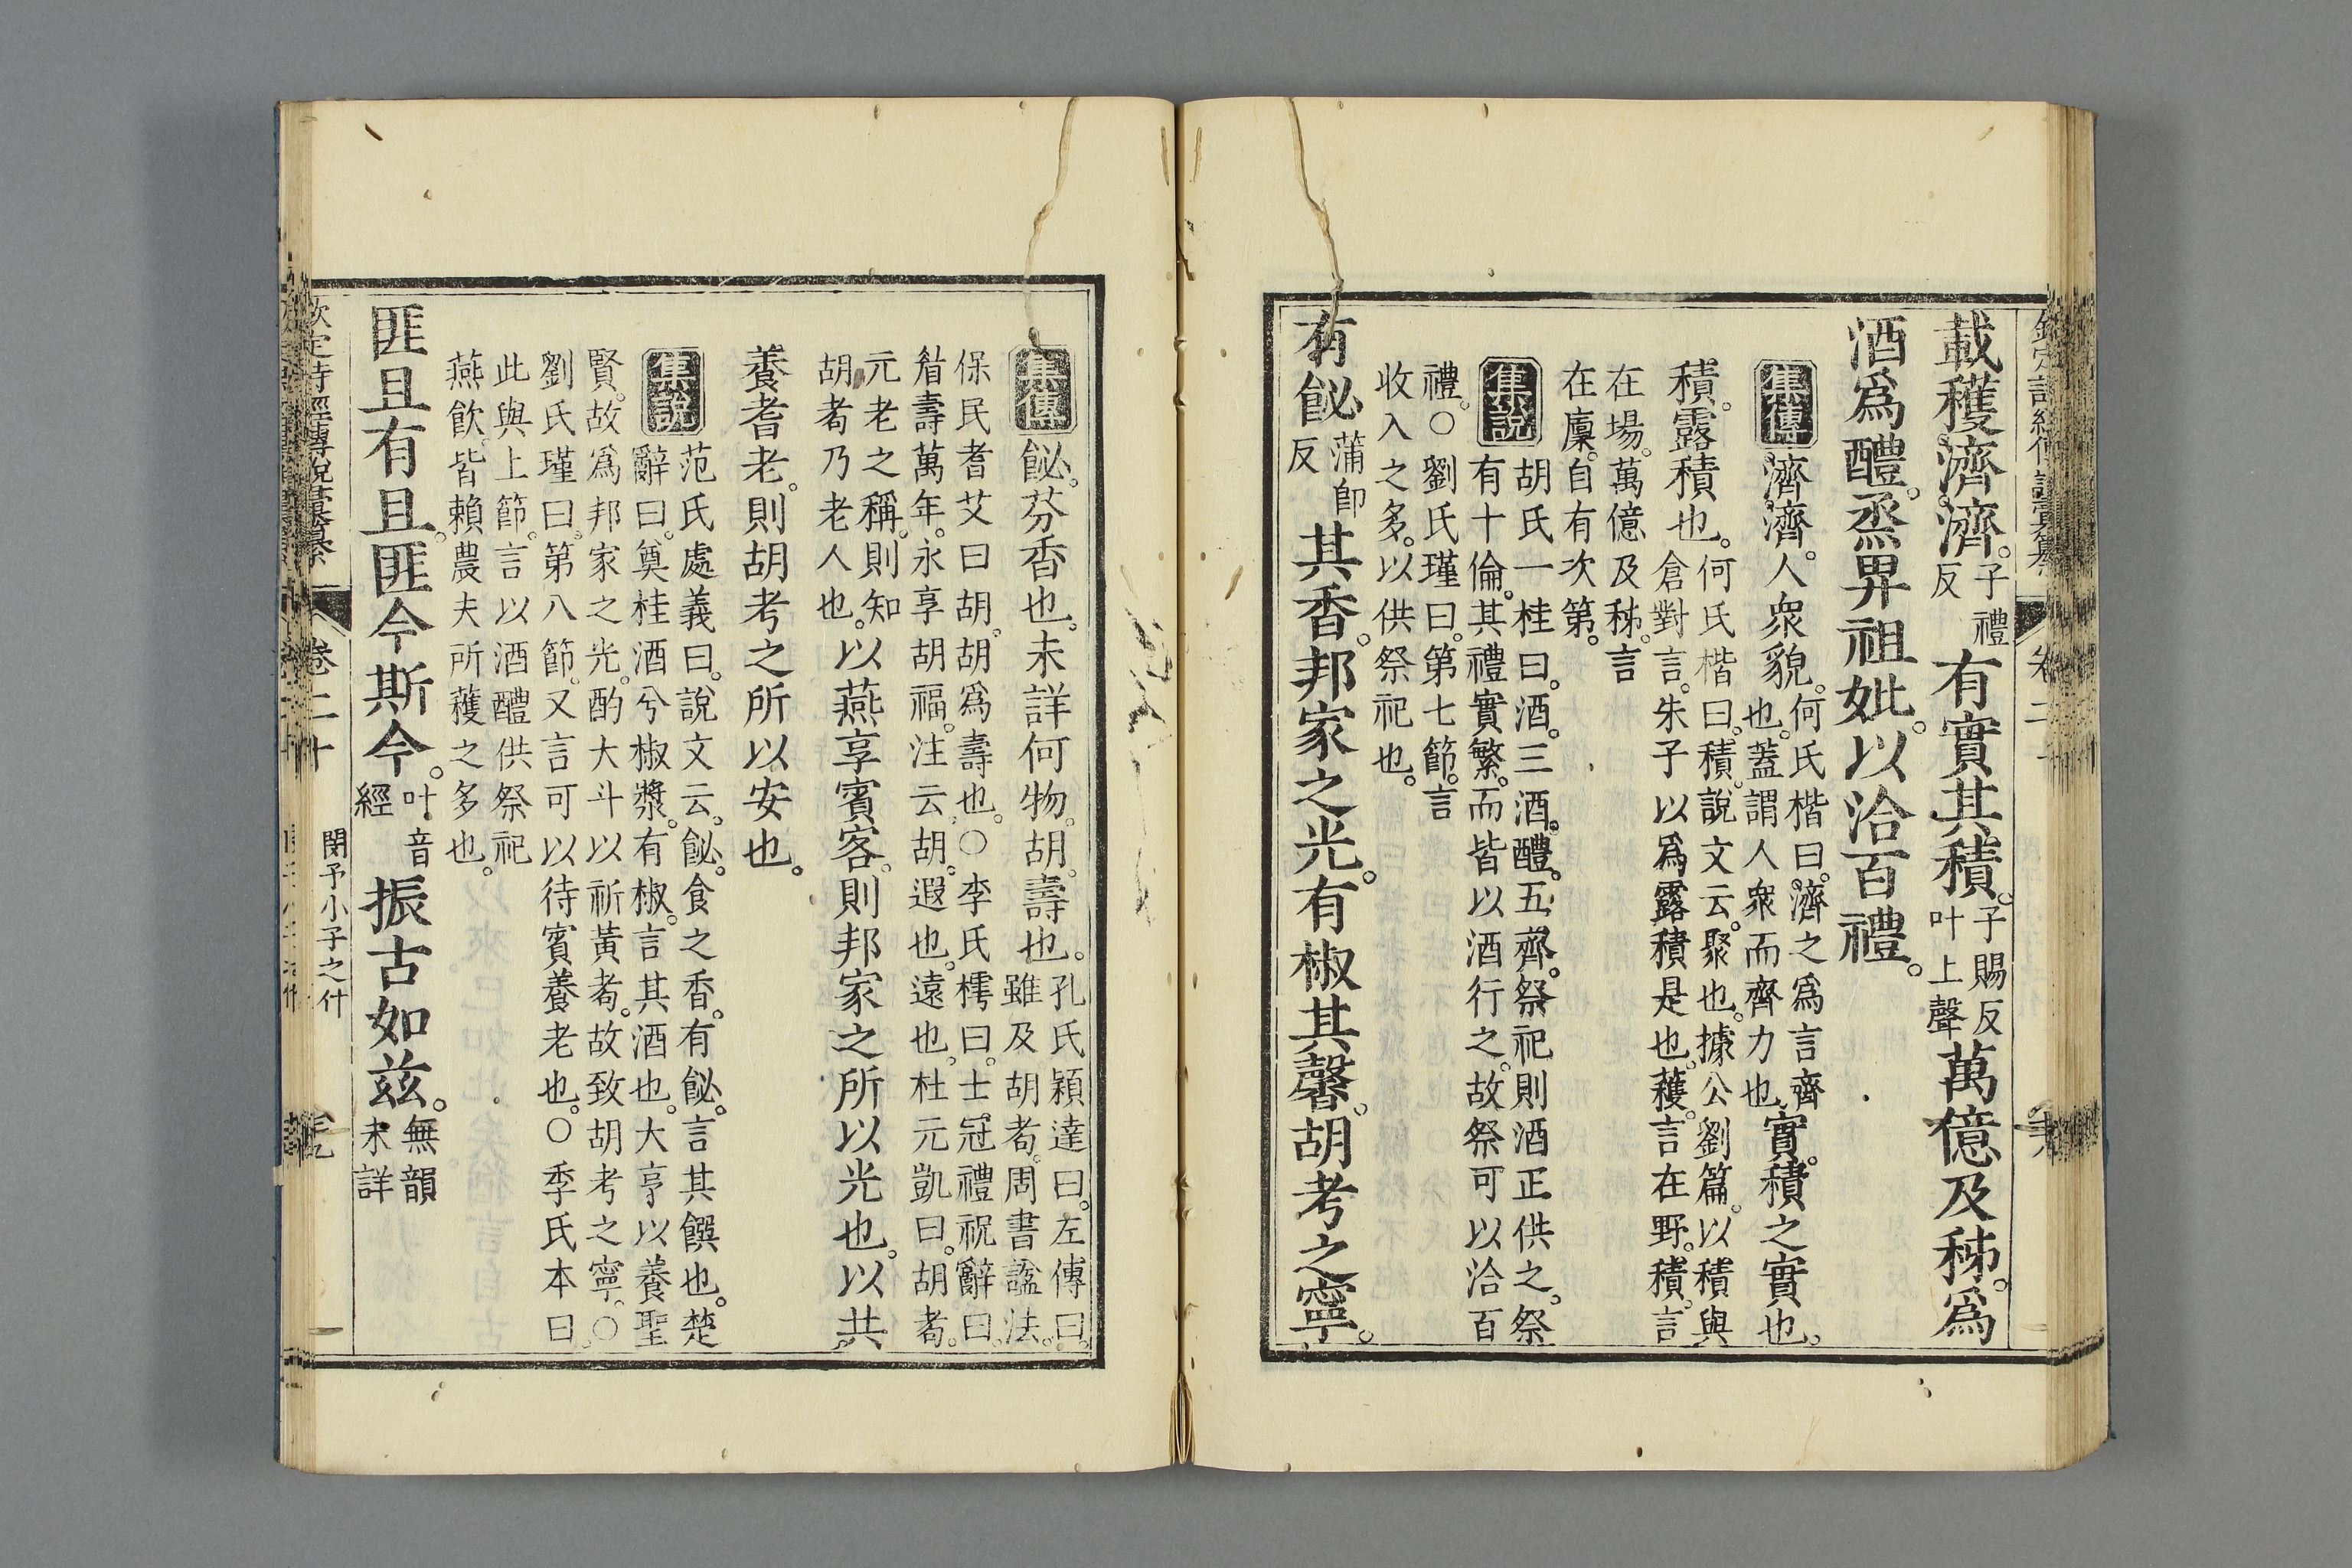 載穫濟濟。子禮反有實其積。子賜反叶上聲萬億及秭。爲
酒爲醴。烝畀祖妣。以洽百禮。
集傳 濟濟。人衆貌。何氏楷曰。濟之爲言齊也。蓋謂人衆而齊力也。實。積之實也。
積。露積也。何氏楷曰。積。說文云。聚也。據公劉篇。以積與倉對言。朱子以爲露積是也。穫。言在野。積。言
在場。萬億及秭。言
在廩。自有次第。
集說 胡氏一桂曰。酒。三酒。醴。五齊。祭祀則酒正供之。祭
有十倫。其禮實繁。而皆以酒行之。故祭可以洽百
禮。○劉氏瑾曰。第七節。言
收入之多。以供祭祀也。
有飶蒲卽反其香。邦家之光。有椒其馨。胡考之寧。
集傳 飶。芬香也。未詳何物。胡。壽也。孔氏穎達曰。左傳曰。雖及胡耇。周書諡法。
保民耆艾曰胡。胡爲壽也。○李氏樗曰。士冠禮祝辭曰。
眉壽萬年。永享胡福。注云。胡。遐也。遠也。杜元凱曰。胡耇。
元老之稱。則知胡耇乃老人也。以燕享賓客。則邦家之所以光也。以共
養耆老。則胡考之所以安也。
集說 范氏處義曰。說文云。飶。食之香。有飶。言其饌也。楚
辭曰。奠桂酒兮椒漿。有椒。言其酒也。大亨以養聖
賢。故爲邦家之光。酌大斗以祈黃耇。故致胡考之寧。○
劉氏瑾曰。第八節。又言可以待賓養老也。○季氏本曰。
此與上節。言以酒醴供祭祀
燕飮。皆賴農夫所穫之多也。
匪且有且。匪今斯今。叶音經振古如茲。無韻未詳
欽定詩經傳說彙纂 卷二十 閔予小子之什